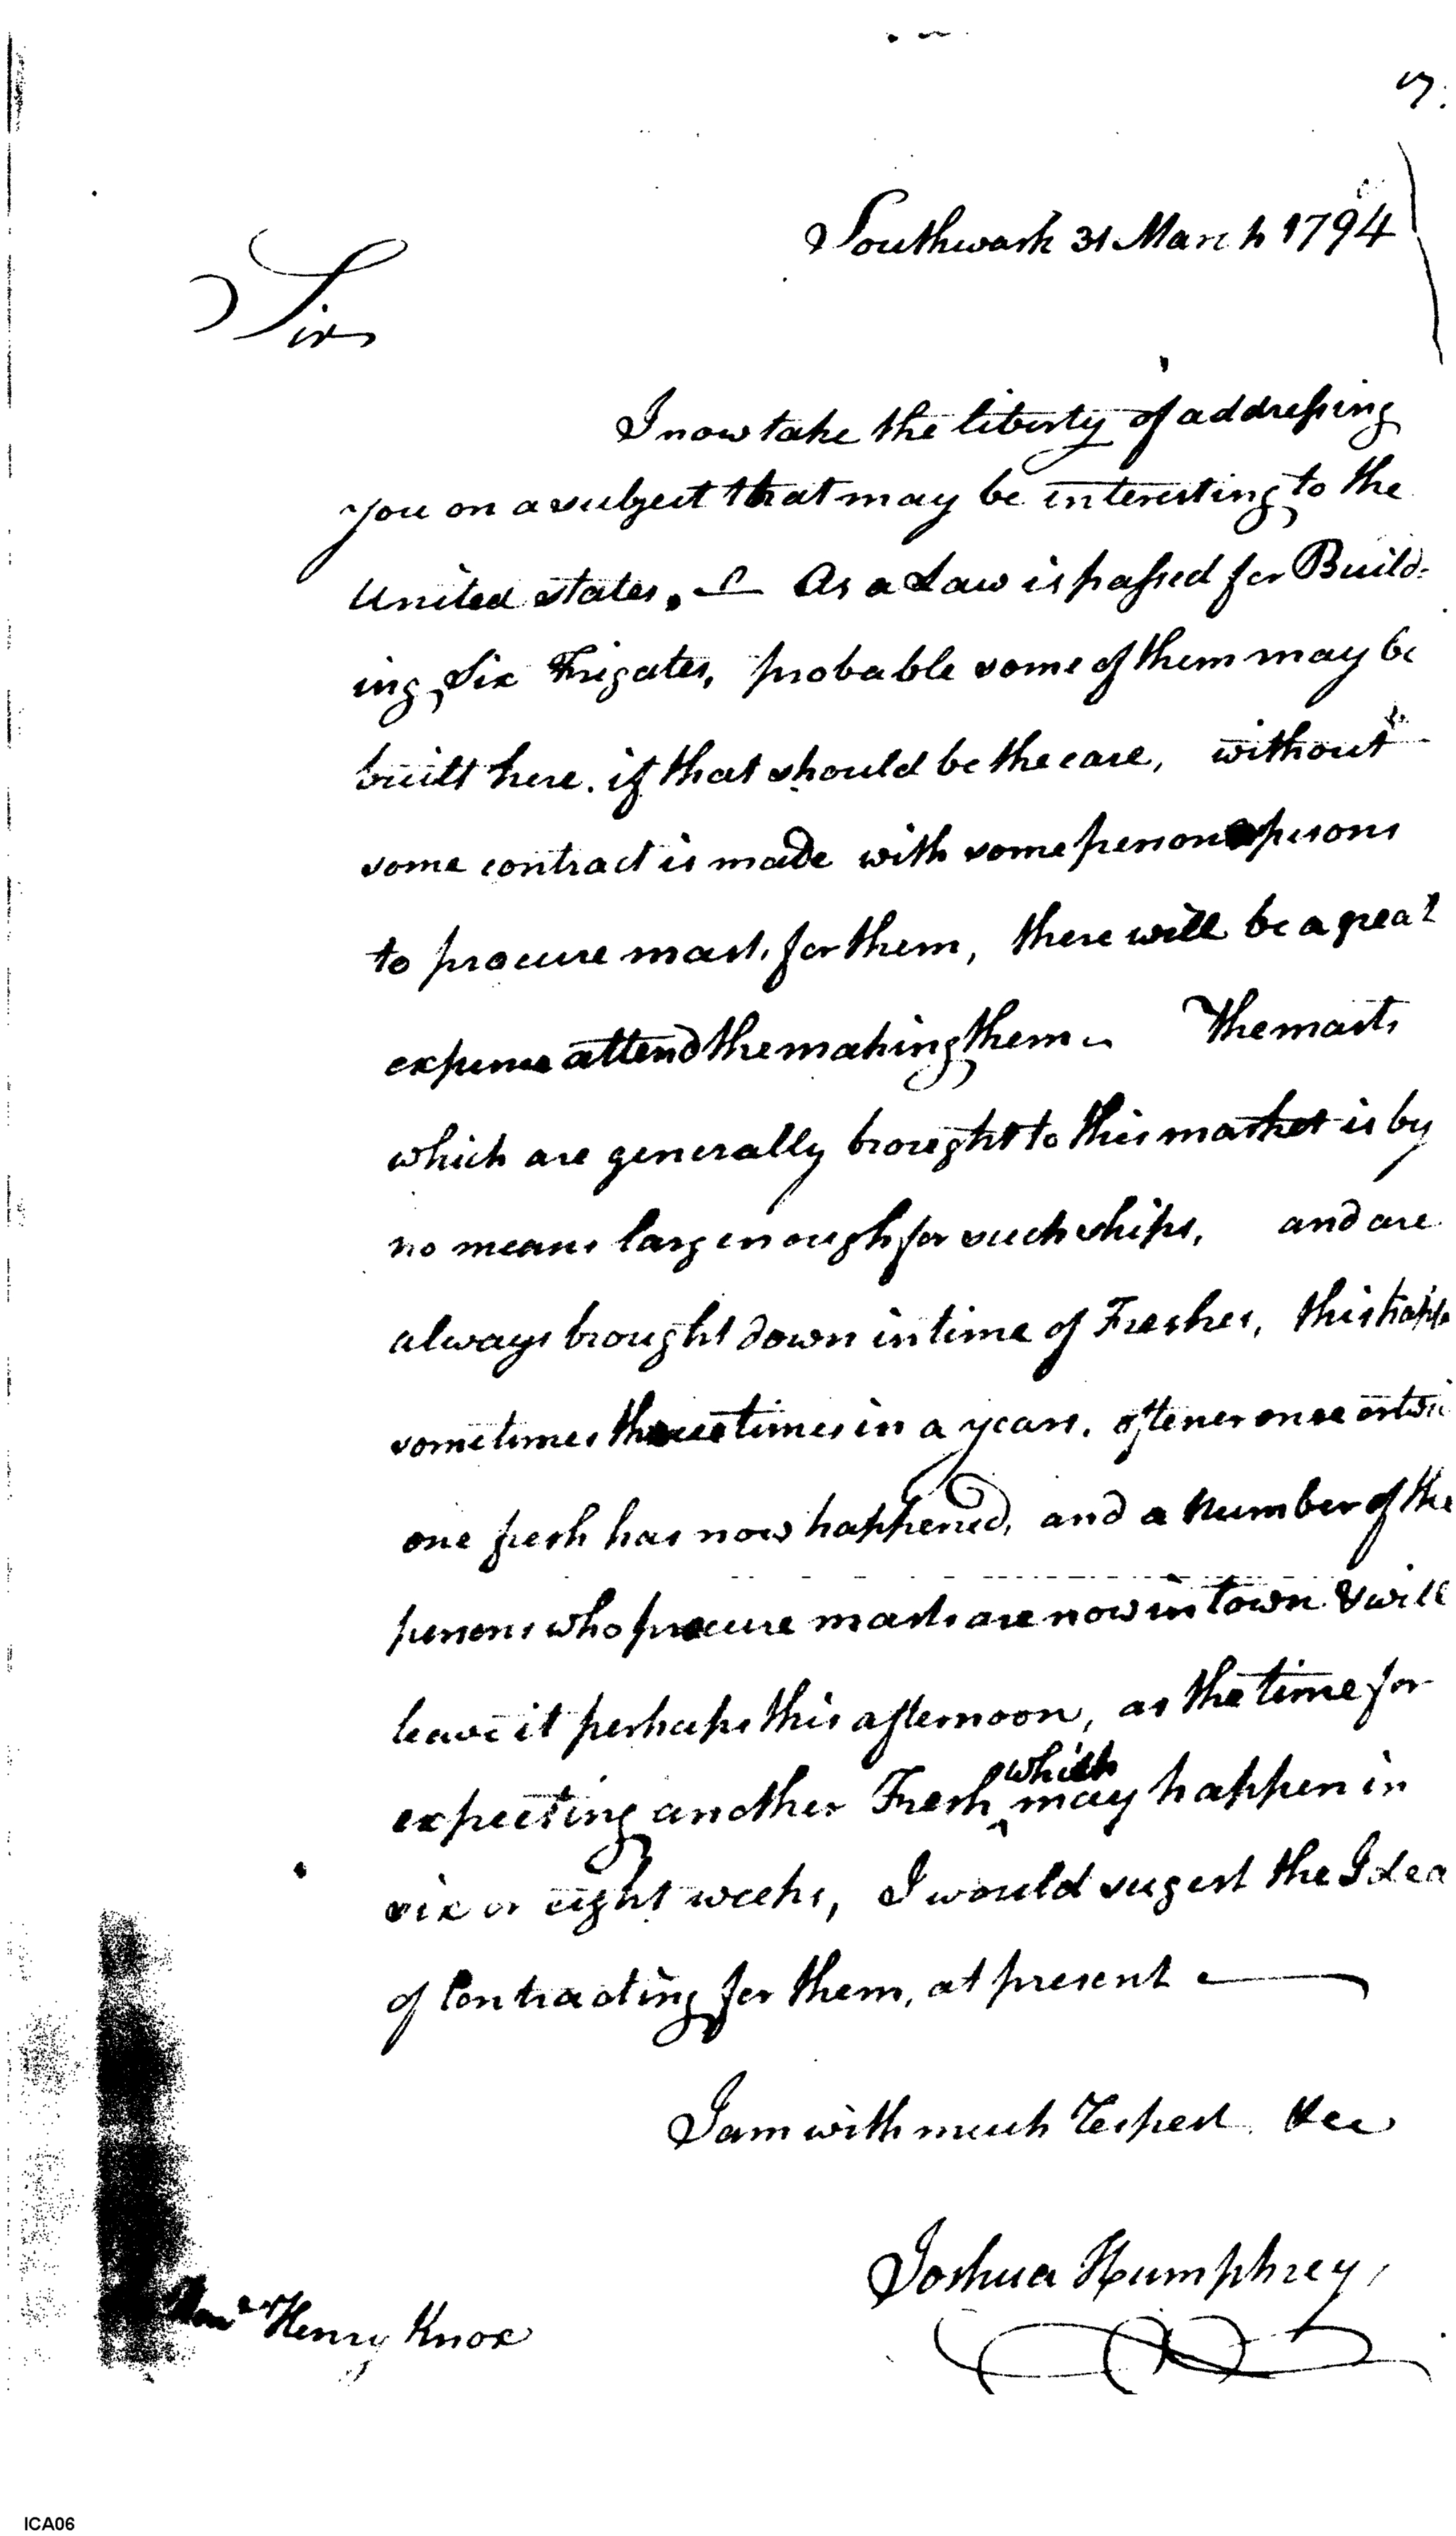 7.
Southwark 31 March 1794
Sir
I now take the liberty of addressing
you on a subject that may be interesting to the
United states. — As a Law is passed for Build-
ing Six Frigates, probable some of them may be
built here. if that should be the case, without
some contract is made with some person persons
to procure masts for them, there will be a great
expense attend the making them — The masts
which are generally brought to this market is by
no means larg enough for such ships, and are
always brought down in time of Freshes, this
sometimes three times in a year. oftener once or
one fresh has now happened, and a Number of the
persons who procure masts are now in town & will
leave it perhaps this afternoon, as the time for
expecting another Fresh which may happen in
six or eight weeks, I would sugest the Idea
of Contracting for them, at present —
I am with much Respect &cc
Joshua Humphreys
Henry Knox
ICA06